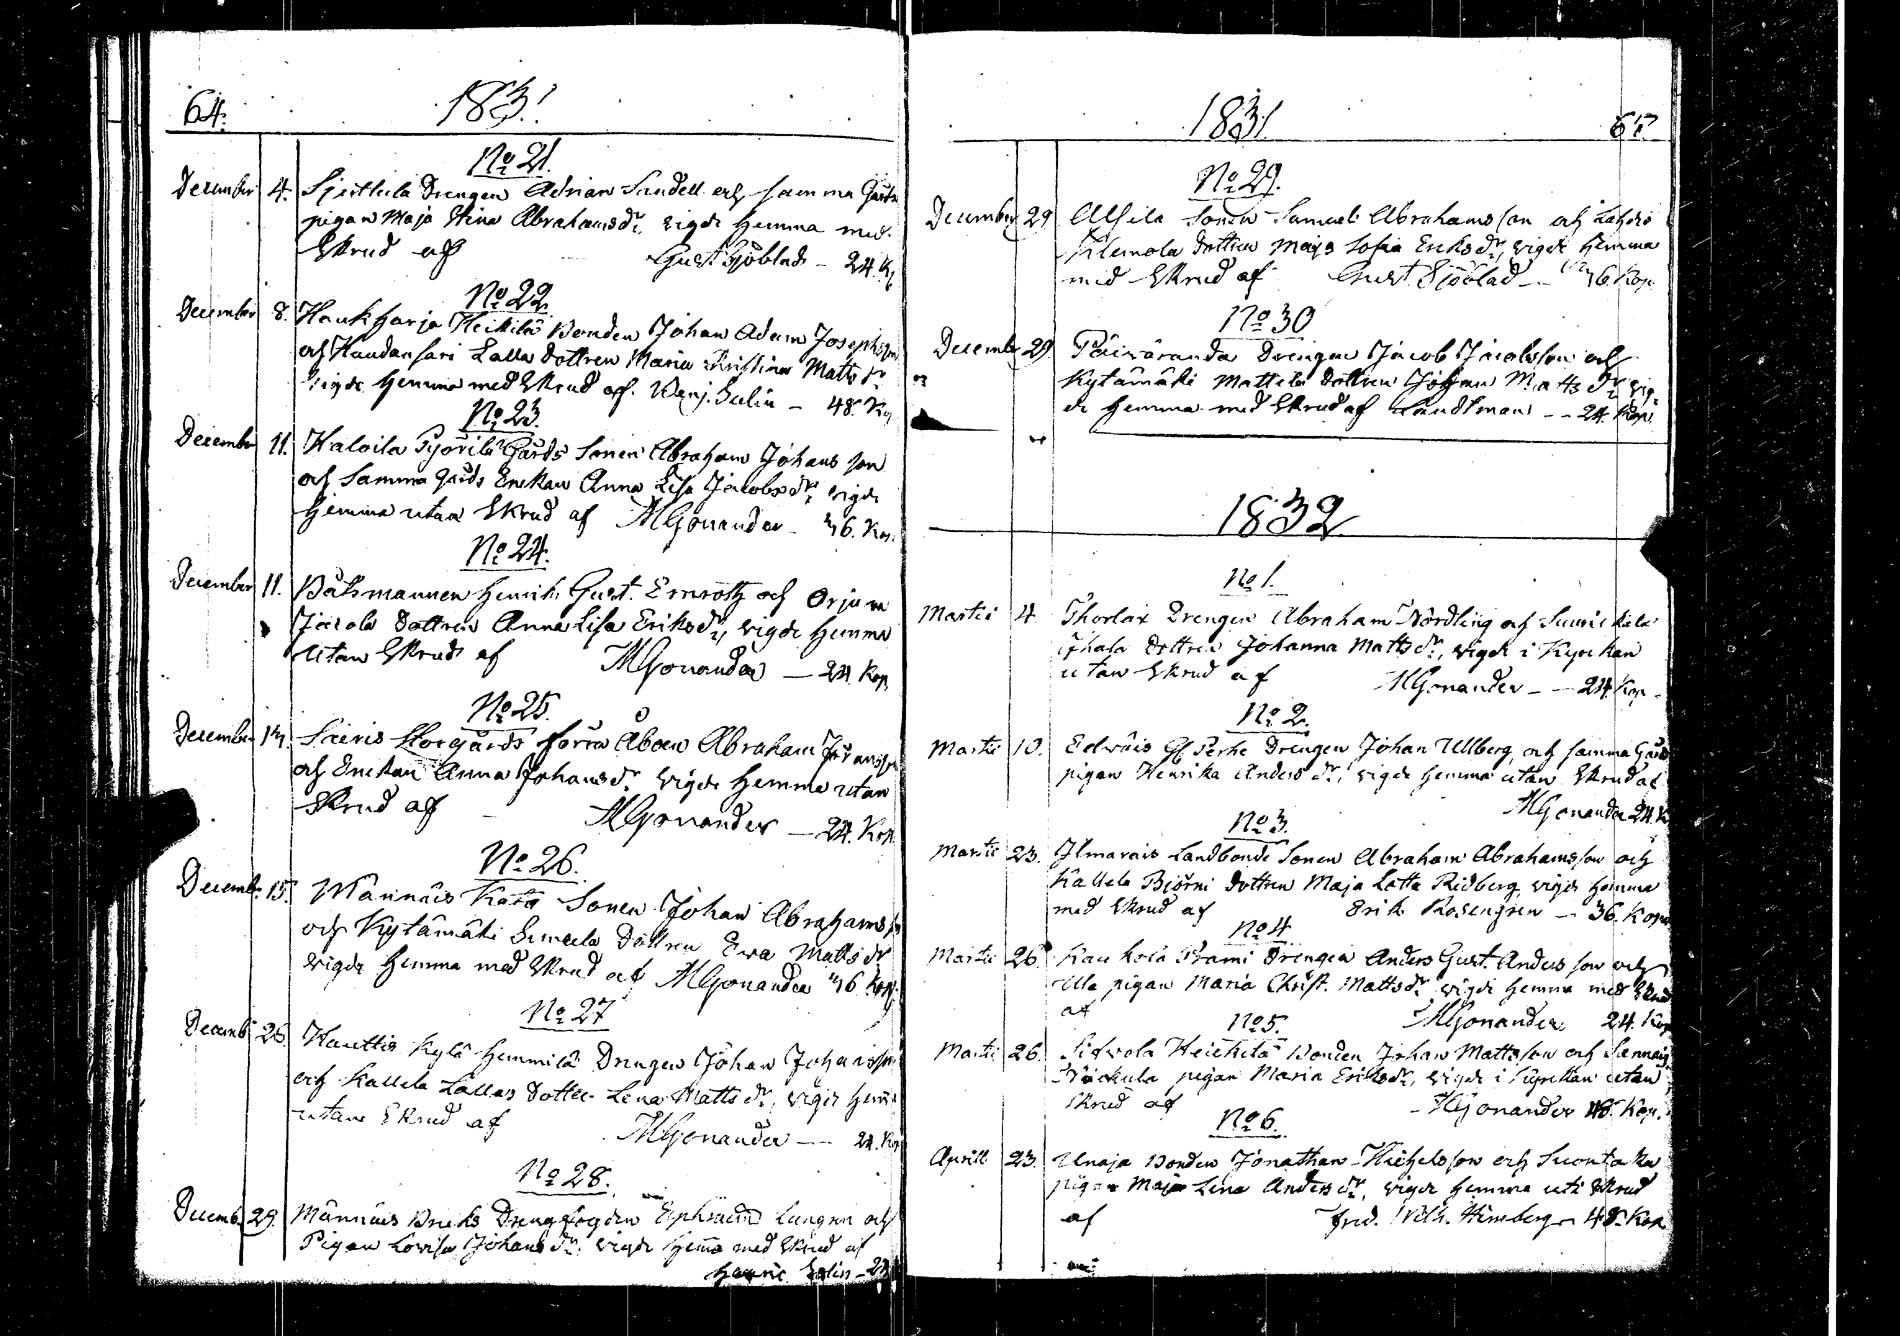 64.
1831.
No 21.
December 4. Sjerttula Drengen Adrian Sundell och samma Gårds
pigan Maja Stina Abrahamsdr, vigde hemma med
Skrud af Gust Sjöblad - 24. K
No 22.
December 8. Haukharja Heikilä Bonden Johan Adam Josephsson
och Haudansari Lalla dottren Maria Kristina Mattsdr
vigde hemma med Skrud af Benj. Salin - 48. Kop
No 23.
December 11. Haloila Pyörilä Gårds Sonen Abraham Johansson
och Samma gårds Enckan Anna Lisa Jacobsdr, vigde
hemma utan Skrud af MGonander - 36. Kop.
No 24.
December 11. Båtsmannen Henrik Gust. Ernroth och Orjum
Jacola dottren Anna Lisa Eriksdr, vigde hemma
utan Skrud af MGonander - 24. Kop
No 25.
December 14. Säeris Storgårds förra Åboen Abraham
och Enckan Anna Johansdr vigde hemma utan
Skrud af - MGonander - 24. Kop.
No 26.
Decemb. 15. Männäis Kata Sonen Johan Abrahamsson
och Kytämäki Simula Dottren Ewa Mattsdr
vigde hemma med Skrud af MGonander 36 Kop.
No 27
Decemb. 26. Hauttis Kylä Hemmilä Drengen Johan Johansson
och Kallela Lallas Dotter Lena Mattsdr, vigde hemma
utan Skrud af MGonander - 24. Kop
No 28.
Decemb. 29. Männäis Drengfogden Ephraim Lungren och
Pigan Lovisa Johansdr. vigde hemma med Skrud af
Henric Salin - 24
1831
65
No 29.
December 29 Alsila Sonen Samuel Abrahamsson och
Filemola dottren Maja Sofia Eriksdr, vigde hemma
med Skrud af Gust Sjöblad - 36. Kop.
No 30
December 29. Päiväranda Drengen Jacob Jacobsson och
Kytämäki Mattela dottren Johan Mattsdr vig-
de hemma med Skrud af Landtman - 24. Kop.
1832
No 1.
Martii 4. Thorlax Drengen Abraham Nordling och
dottren Johanna Mattsdr, vigde i Kyrckan
utan Skrud af MGonander - - 24. Kop -
No 2.
Martii 10. Edwäis Perke Drengen Johan Ullberg, och samma Gårds
pigan Henrika Andersdr, vigde hemma utan Skrud af
MGonander 24. K
No 3.
Martii 23. Ilmarais Landbonde Sonen Abraham Abrahamsson och
Kallela Björni dottren Maja Lotta Ridberg vigde hemma
med Skrud af Erik Rosengren - 36. Kop
No 4
Martii 26. Prami Drengen Anders Gust. Andersson och
Ulla pigan Maria Christ. Mattsdr, vigde hemma med Skrud
af MGonander 24. Kop
No 5.
Martii 26. Sidvola Heickilä Bonden Johan Mattsson och
pigan Maria Eriksdr, vigde i Kyrckan utan
Skrud af - MGonander 48. Kop.
No 6.
Aprill 23. Unaja Bonden Jonathan Michelsson och Suontaka
pigan Maja Lena Andersdr, vigde hemma utan Skrud
af Fred. Wilh. Himberg - 48. Kop.